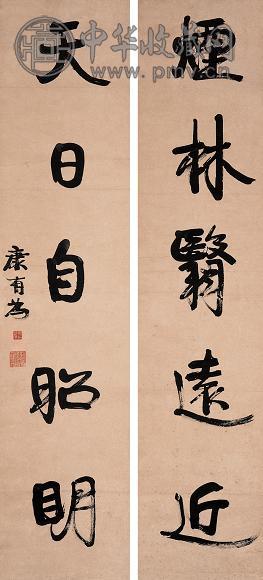 煙林翳遠近
天日自昭明
康有為
中华收藏网
www.pmv.cn